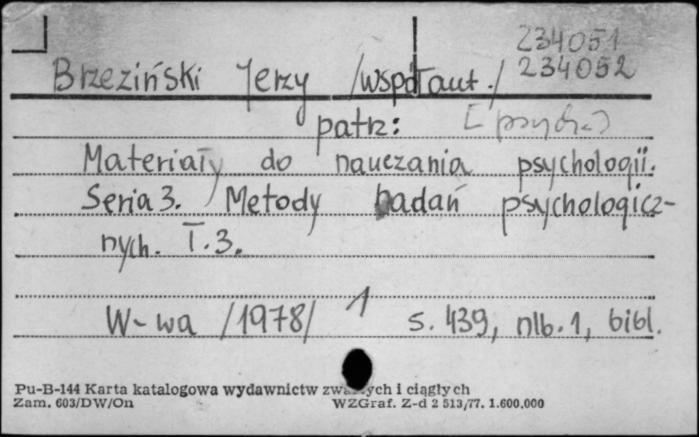 234051
Brzeziński Jerzy /współaut./ 234052
patrz: [psych.]
Materiały do nauczania psychologii.
Seria 3. Metody badań psychologicz-
nych. T.3.
W-wa /1978/ 1 s. 439, nlb. 1, bibl.
Pu-B-144 Karta katalogowa wydawnictw zwartych i ciągłych
Zam. 603/DW/On WZGraf. Z-d 2 513/77. 1.600.000